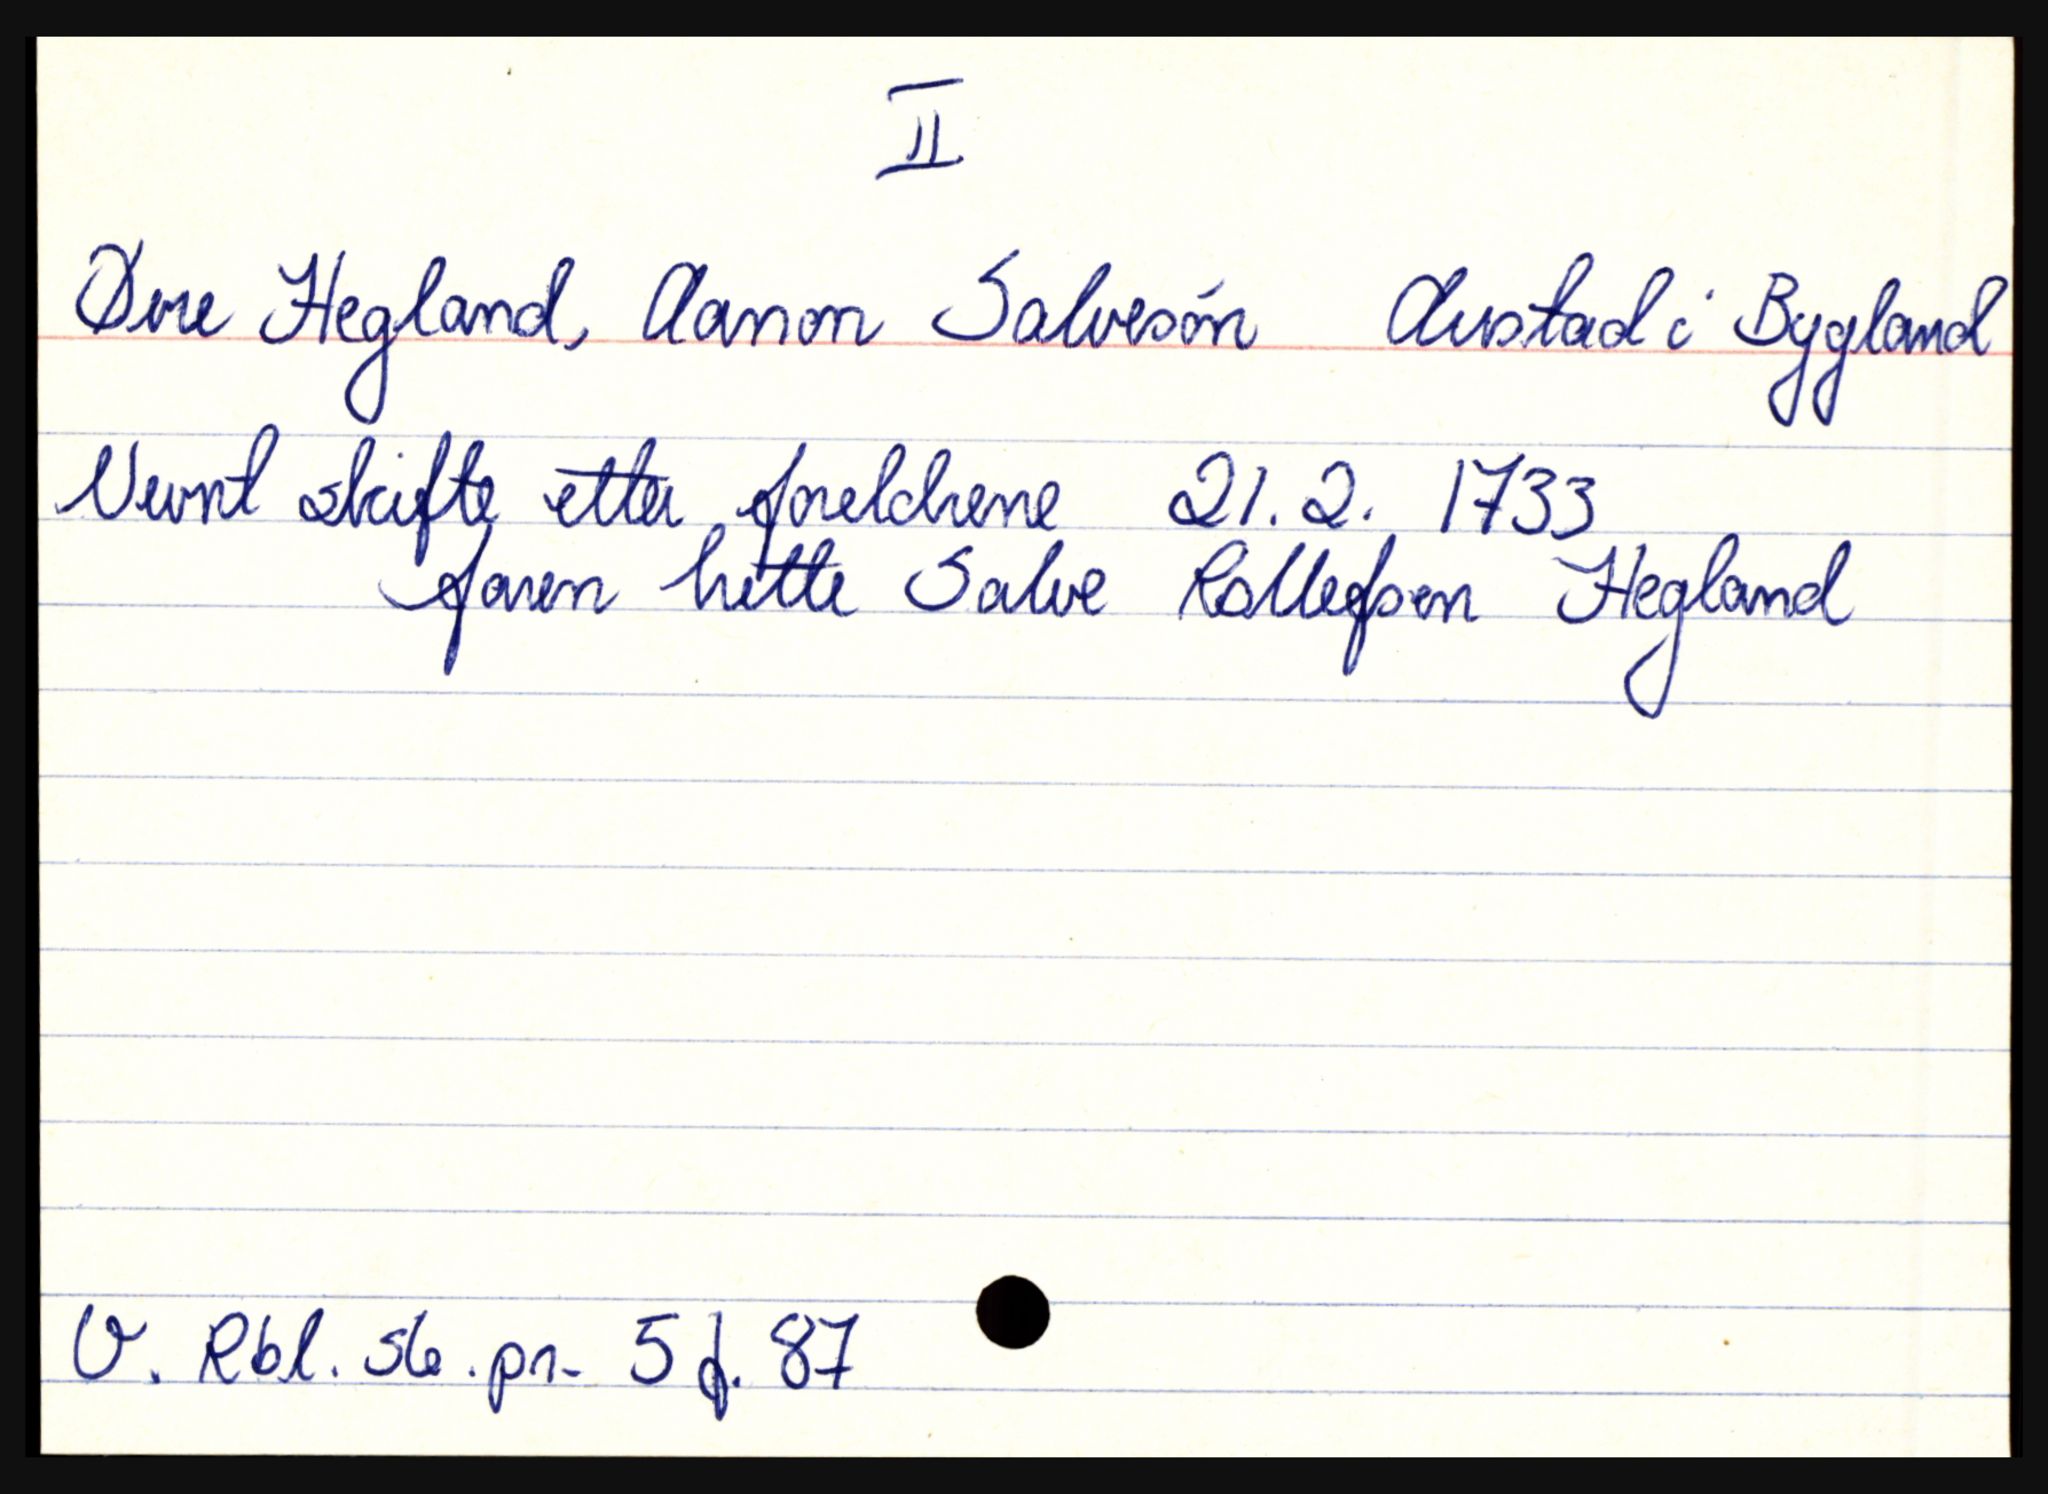 II
Øvre Hegland, Aanon Salvesøn Austad i Bygland
Nevnt skifte etter foreldrene 21. 2. 1733
faren hette Salve Rollefsen Hegland
V. Rbl. sk. pr. 5 f. 87